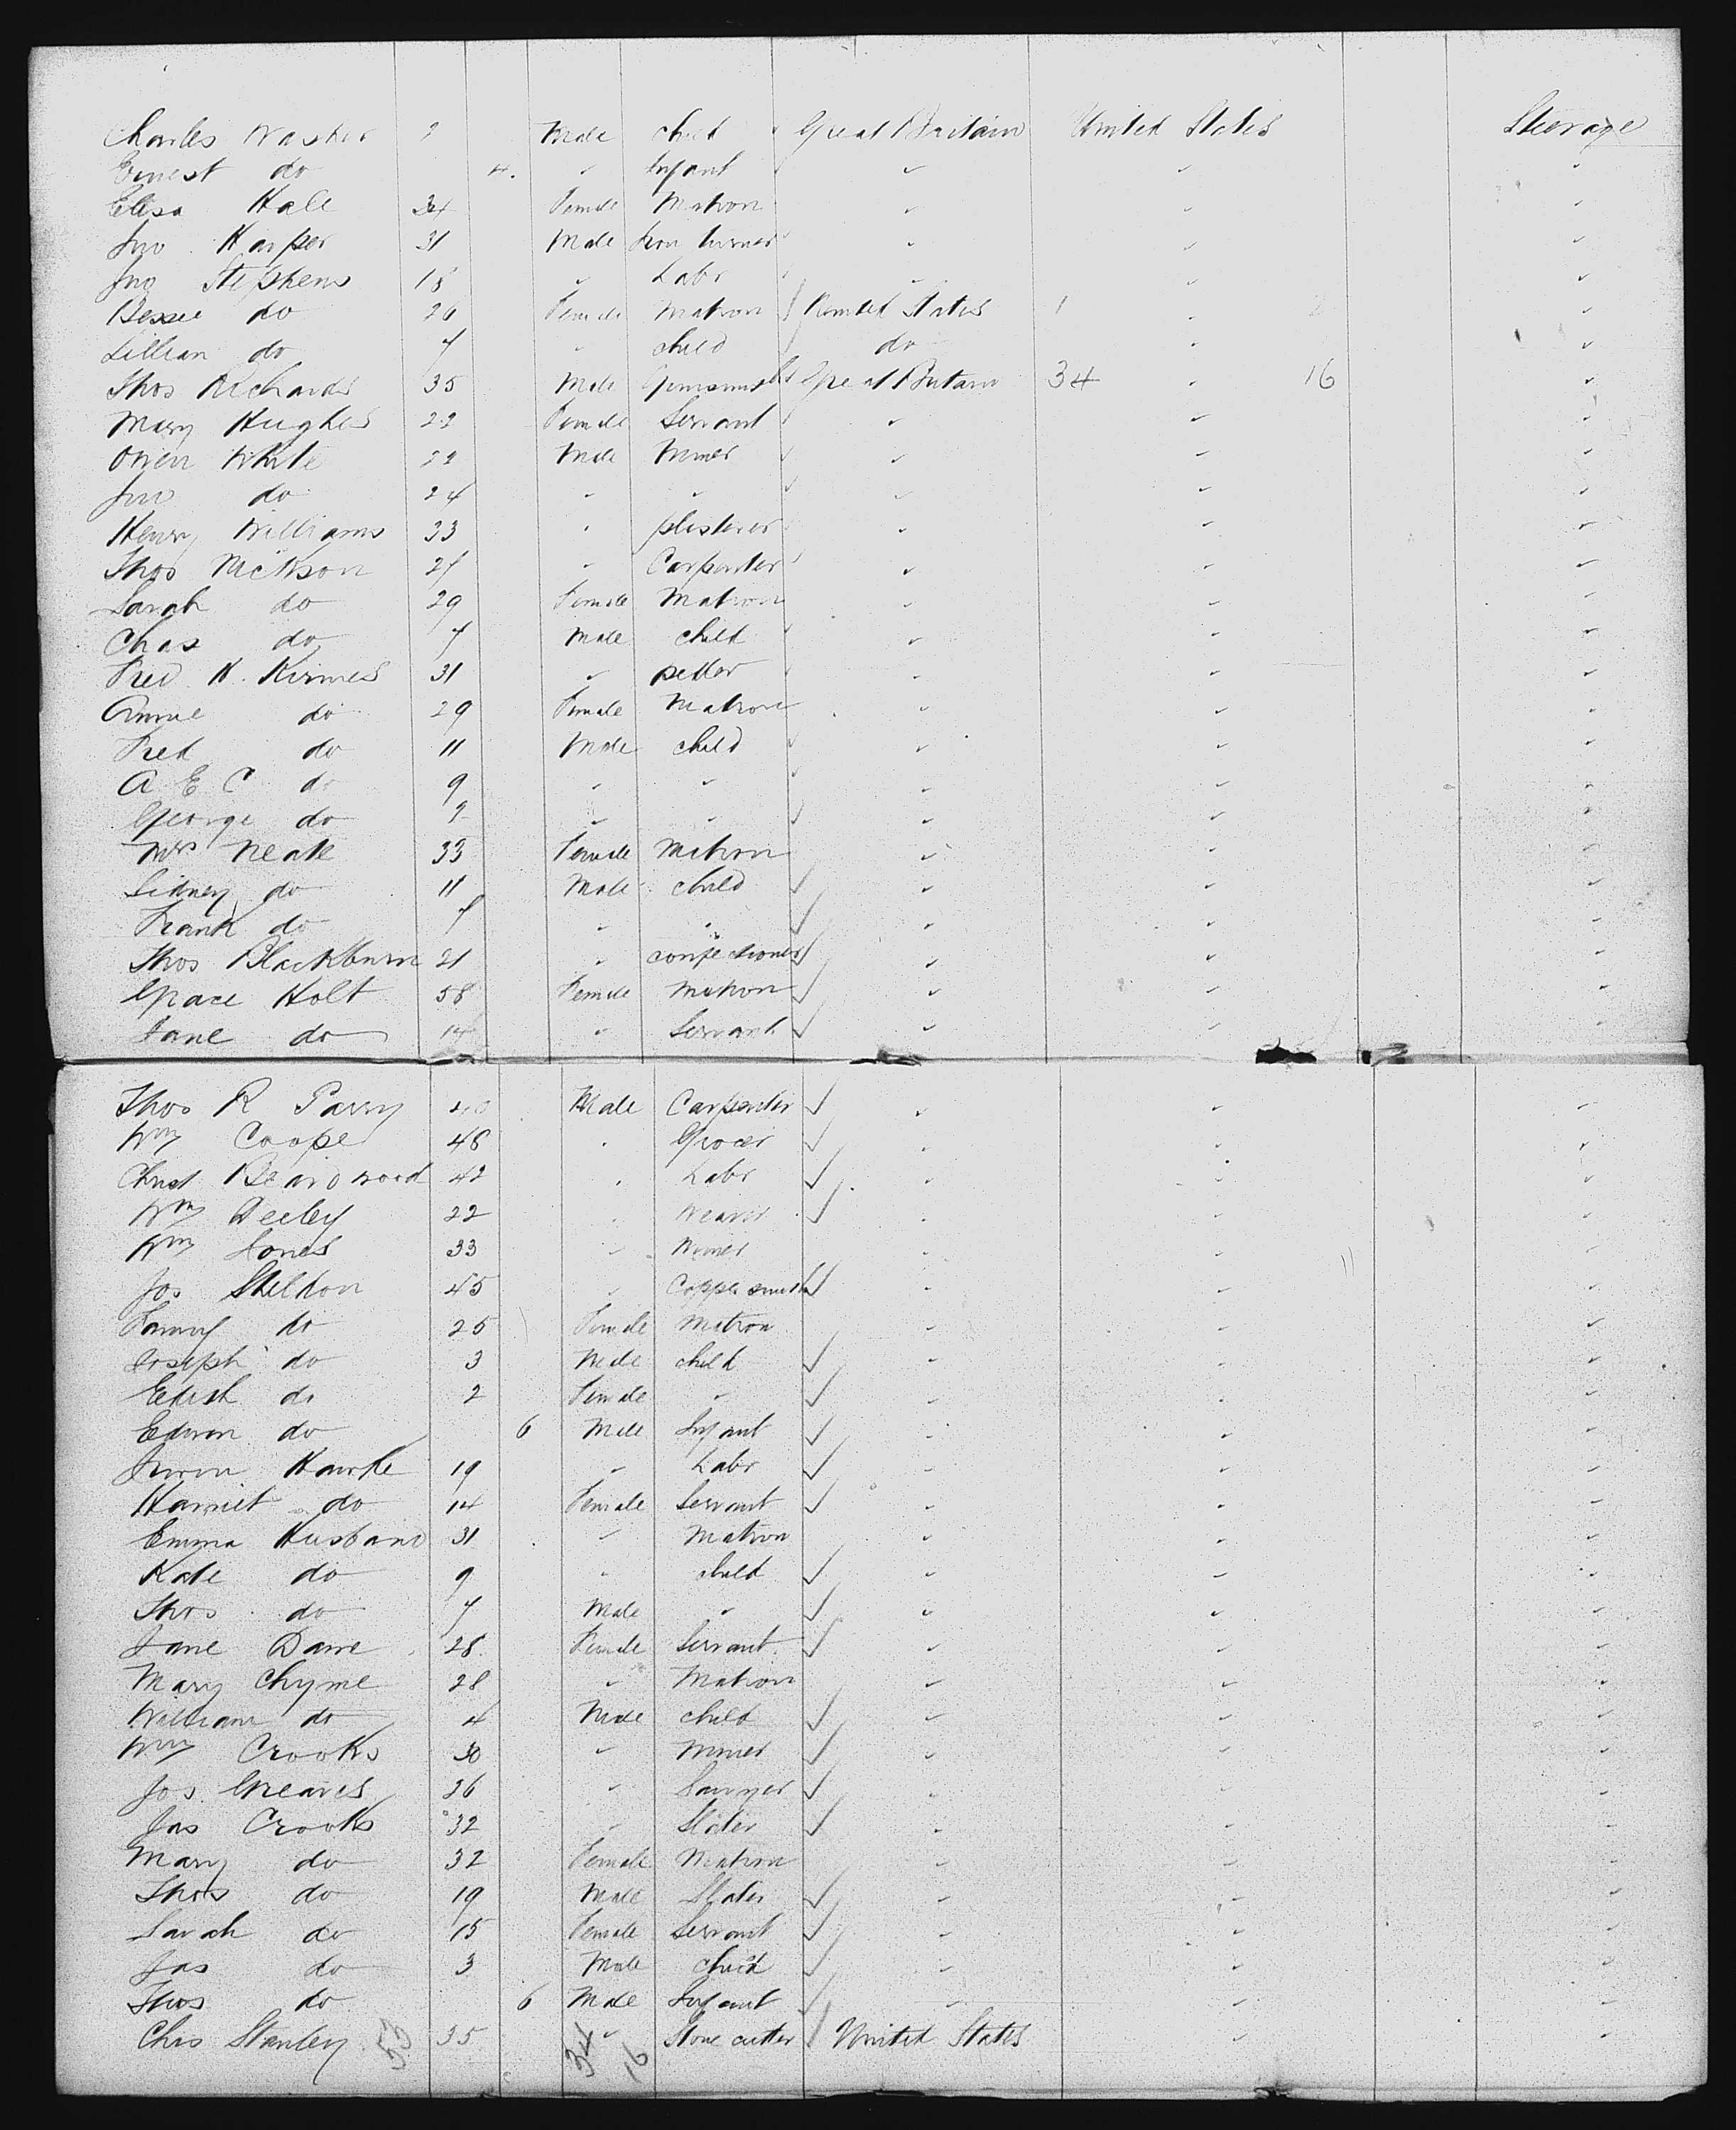 Charles Washer 9 Male child Great Britain United States Steerage
Ernest do 4. " Infant " " "
Elisa Hale 34 Female Matron " " "
Jno Harper 31 Male Iron turner " " "
Jno Stephens 18 " Labr " " "
Bessie do 26 Female Matron United States 1 " "
Lillian do 7 " child do " "
Thos Richards 35 Male Great Britain 34 " 16 "
Mary Hughes 22 Female Servant " " "
Owen White 22 Male Miner " " "
Jno do 24 " " " " "
Henry Williams 33 " plasterer " " "
Thos Nickson 27 " Carpenter " " "
Sarah do 29 Female Matron " " "
Chas do 7 Male child " " "
Fred K. Kirmes 31 " " " "
Annie do 29 Female Matron " " "
Fred do 11 Male child " " "
A E C do 9 " " " " "
George do 9 " " " " "
Mrs Neate 33 Female Matron " " "
Sidney do 11 Male child " " "
Frank do 7 " " " " "
Thos Blackburn 21 " confectioner " " "
Grace Holt 58 Female Matron " " "
Jane do 14 " Servant " " "
Thos R Parry 40 Male Carpenter " " "
Wm Coope 48 " Grocer " " "
Christ Beardwood 42 " Labr " " "
Wm Deeley 22 " Weaver " " "
Wm Jones 33 " Miner " " "
Jos Skelton 45 " Coppersmith " " "
Fanny do 25 Female Matron " " "
Joseph do 3 Male child " " "
Edith do 2 Female " " " "
Edwin do 6 Male Infant " " "
Hawke 19 " Labr " " "
Harriet do 14 Female Servant " " "
Emma Husband 31 " Matron " " "
Kate do 9 " child " " "
Thos do 7 Male " " " "
Jane Dane 28 Female Servant " " "
Mary Chyme 28 " Matron " " "
William do 4 Male child " " "
Wm Crooks 30 " Miner " " "
Jos. Greaves 26 " Sawyer " " "
Jas Crooks 32 " Slater " " "
Mary do 32 Female Matron " " "
Thos do 19 Male Slater " " "
Sarah do 15 Female Servant " " "
Jas do 3 Male child " " "
Thos do 6 Male Infant " " "
Chris Stanley 35 " Stone cutter United States " "
53 34 16